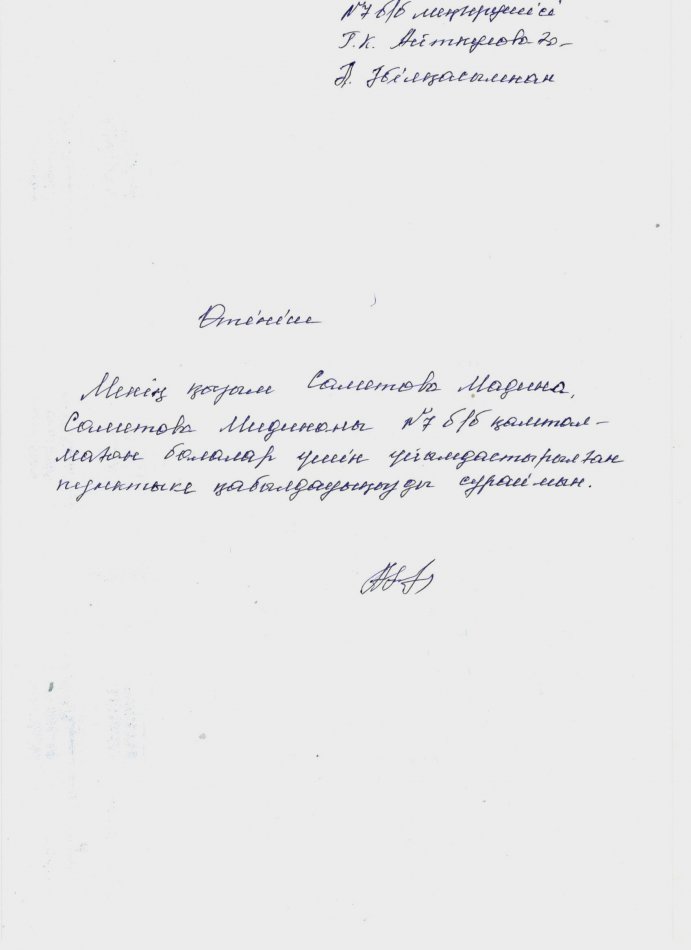 №7 б/б меңгерушісі
Г.К. Айткулова ға-
А. Әбілқасымнан
Өтініш
Менің қызым Саметова Мадина,
Саметова Мадинаны №7 б/б қамтыл-
маған балалар үшін ұйымдастырылған
пунктыке қабылдауыңызды сұраймын.